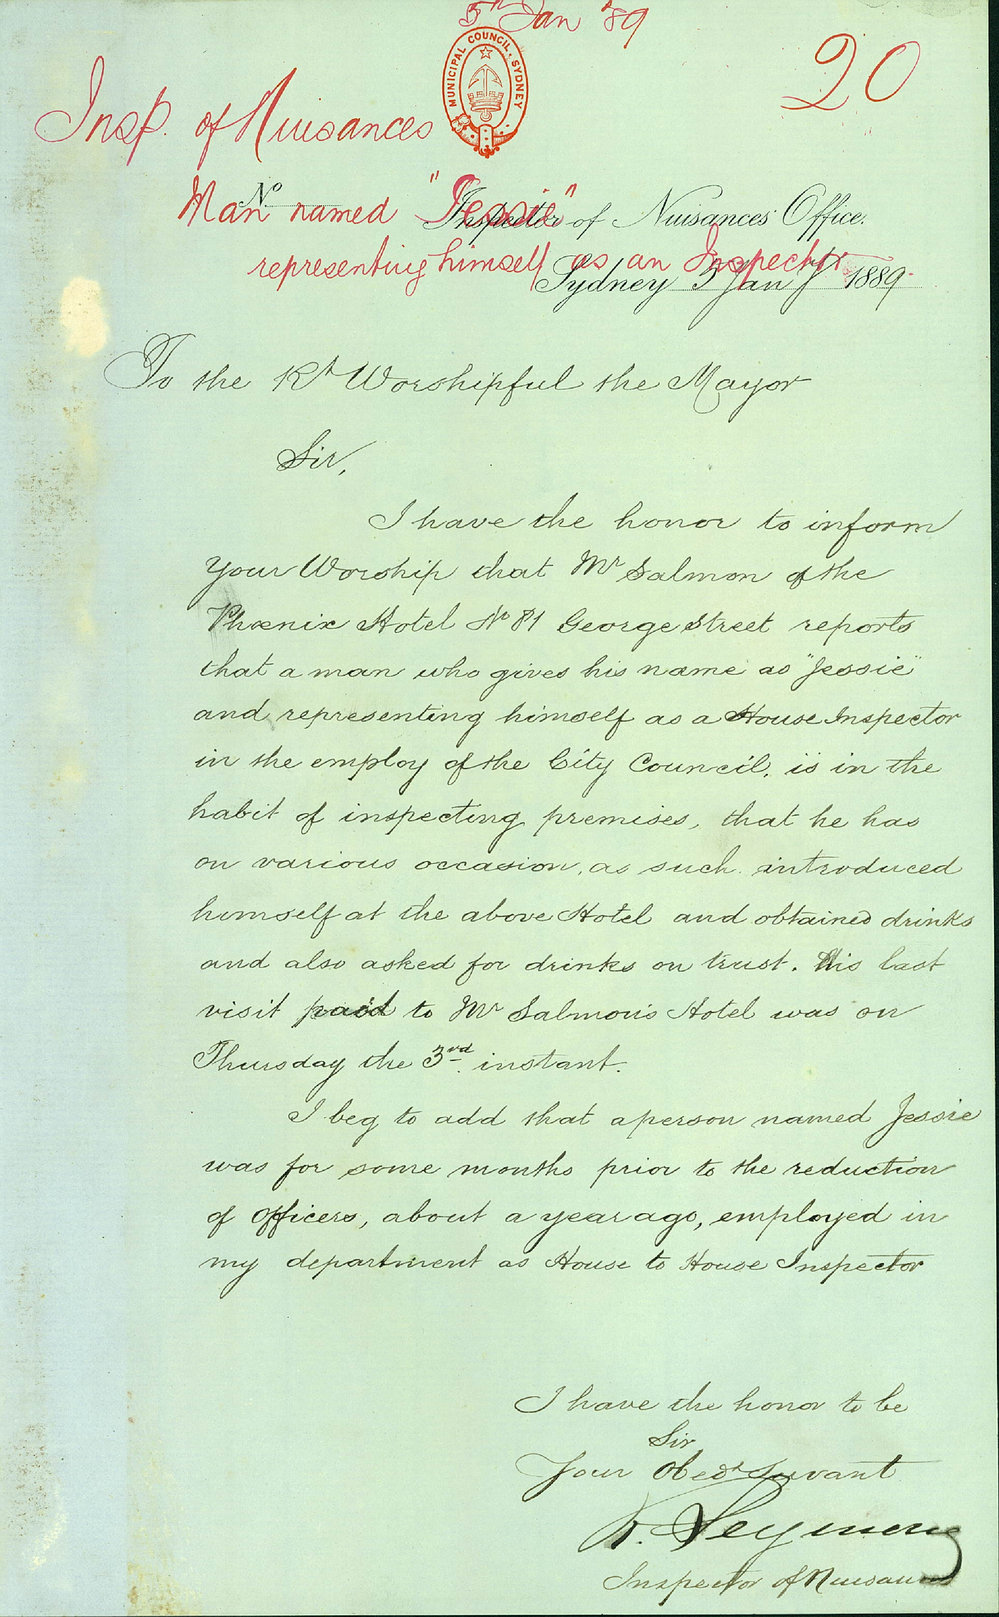 5th Jan '89
20
MUNICIPAL COUNCIL, SYDNEY
Insp. of Nuisances
No
Man named "Jessie"
Inspector of Nuisances Office.
representing himself as an Inspector
Sydney 5 Jany 1889.
To the Rt Worshipful the Mayor
Sir,
I have the honor to inform
Your Worship that Mr Salmon of the
Phœnix Hotel No 81 George Street reports
that a man who gives his name as "Jessie"
and representing himself as a House Inspector
in the employ of the City Council, is in the
habit of inspecting premises, that he has
on various occasion, as such introduced
himself at the above Hotel and obtained drinks
and also asked for drinks on trust. His last
visit paid to Mr Salmon's Hotel was on
Thursday the 3rd instant.
I beg to add that a person named Jessie
was for some months prior to the reduction
of Officers, about a year ago, employed in
my department as House to House Inspector
I have the honor to be
Sir
Your Obedt Servant
R. Seymour
Inspector of Nuisances